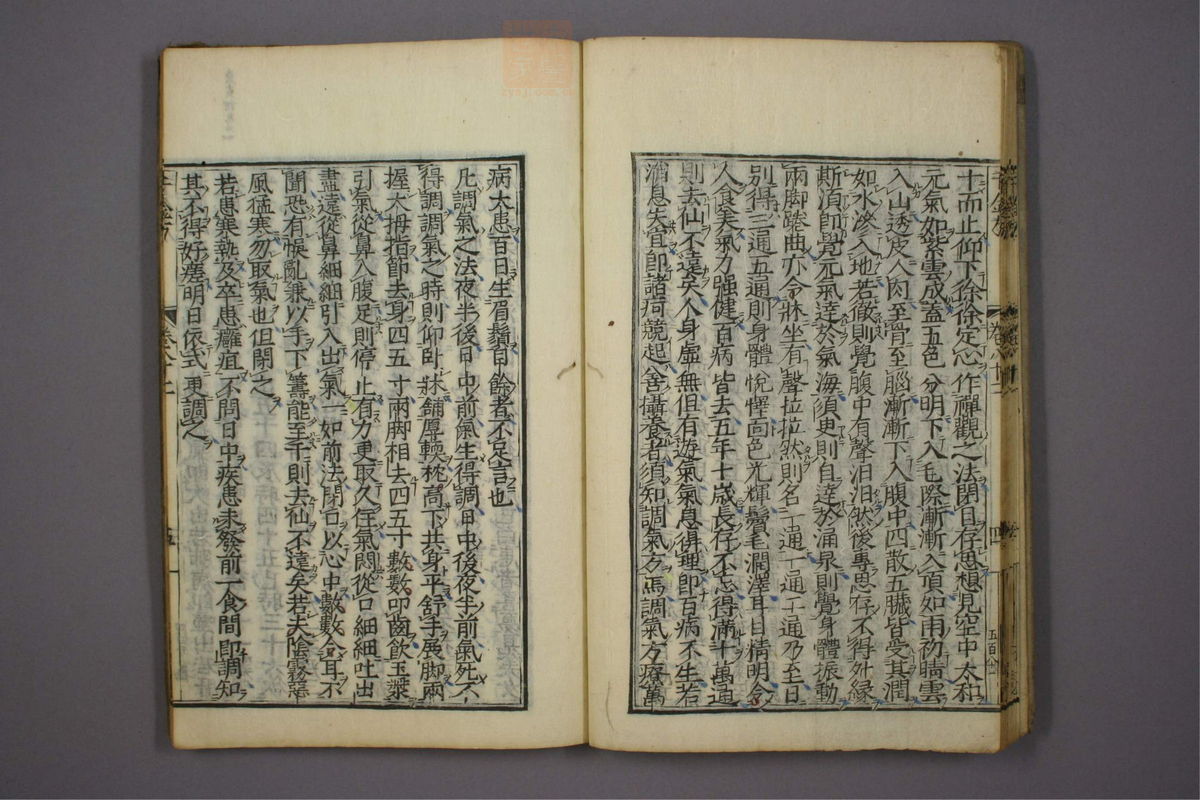 十而止仰下徐徐定心作禪觀之法閉目存思想見空中太和
元氣如紫雲成蓋五色分明下入毛際漸漸入頂如雨初晴雲
入山透皮入肉至骨至腦漸漸下入腹中四肢五臟皆受其潤
如水滲入地若徹則覺腹中有聲汩汩然後專思存不得外緣
斯湏即覺元氣達於氣海須臾則自達於涌泉則覺身體振動
兩脚踡曲亦令牀坐有聲拉拉然則名一通一通二通乃至日
別得三通五通則身體悅懌面色光輝鬢毛潤澤耳目精明令
人食美氣力强健百病皆去五年十歲長存不忘得滿千萬通
則去仙不遠矣人身虛無但有遊氣氣息得理即百病不生若
消息失宜即諸痾競起善攝養者須知調氣方焉調氣方療萬
千金方
卷八十二
四
病大患百日生眉鬚自餘者不足言也
凡調氣之法夜半後日中前氣生得調日中後夜半前氣死不
得調調氣之時則仰卧牀鋪厚輭枕高下共身平舒手展脚兩
握大拇指節去身四五寸兩脚相去四五寸數數叩齒飲玉漿
引氣從鼻入腹足則停止有力更取久住氣悶從口細細吐出
盡遠從鼻細細引入出氣一如前法閉口以心中數數令耳不
聞恐有悞亂兼以手下籌能至千則去仙不遠矣若天陰霧惡
風猛寒勿取氣也但閉之
若患寒熱及卒患癰疽不問日中疾患未發前一食間即調如
其不得好瘥明日依式更調之
千金方
卷八十二
五